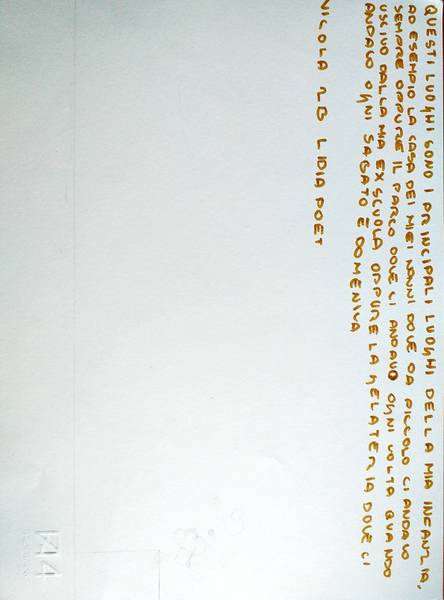 QUESTI LUOGHI SONO I PRINCIPALI LUOGHI DELLA MIA INFANZIA,
AD ESEMPIO LA CASA DEI MIEI NONNI DOVE DA PICCOLO CI ANDAVO
SEMPRE OPPURE IL PARCO DOVE CI ANDAVO OGNI VOLTA QUANDO
USCIVO DALLA MIA EX SCUOLA OPPURE LA GELATERIA DOVE CI
ANDAVO OGNI SABATO E DOMENICA
NICOLA 2B LIDIA POET